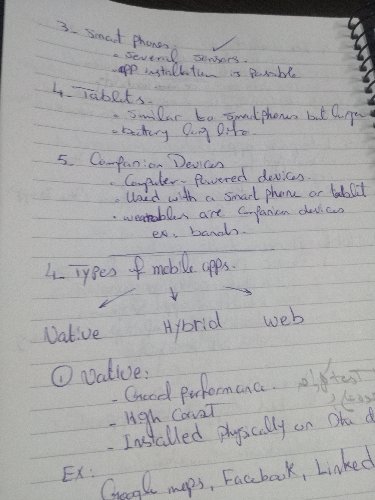 3- Smart phones.
. Several sensors.
. app installation is possible
4- Tablets.
. Similar to smartphones but larger
. battery long life
5. Companion Devices
. Computer-powered devices.
. Used with a smart phone or tablet
. wearables are companion devices
ex. bands.
4- Types of mobile apps.
Native Hybrid web
① Native:
- Good performance.
- High
- Installed physically on the d
Ex:
Google maps, Facebook, Linked